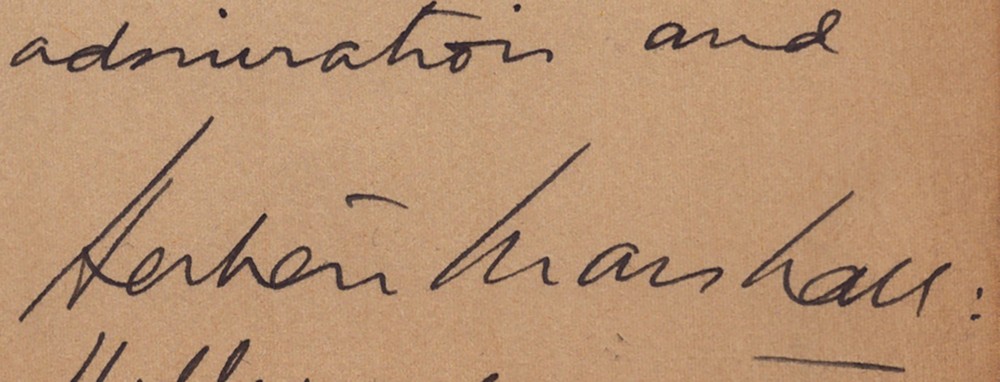 admiration and
Herbert Marshall: